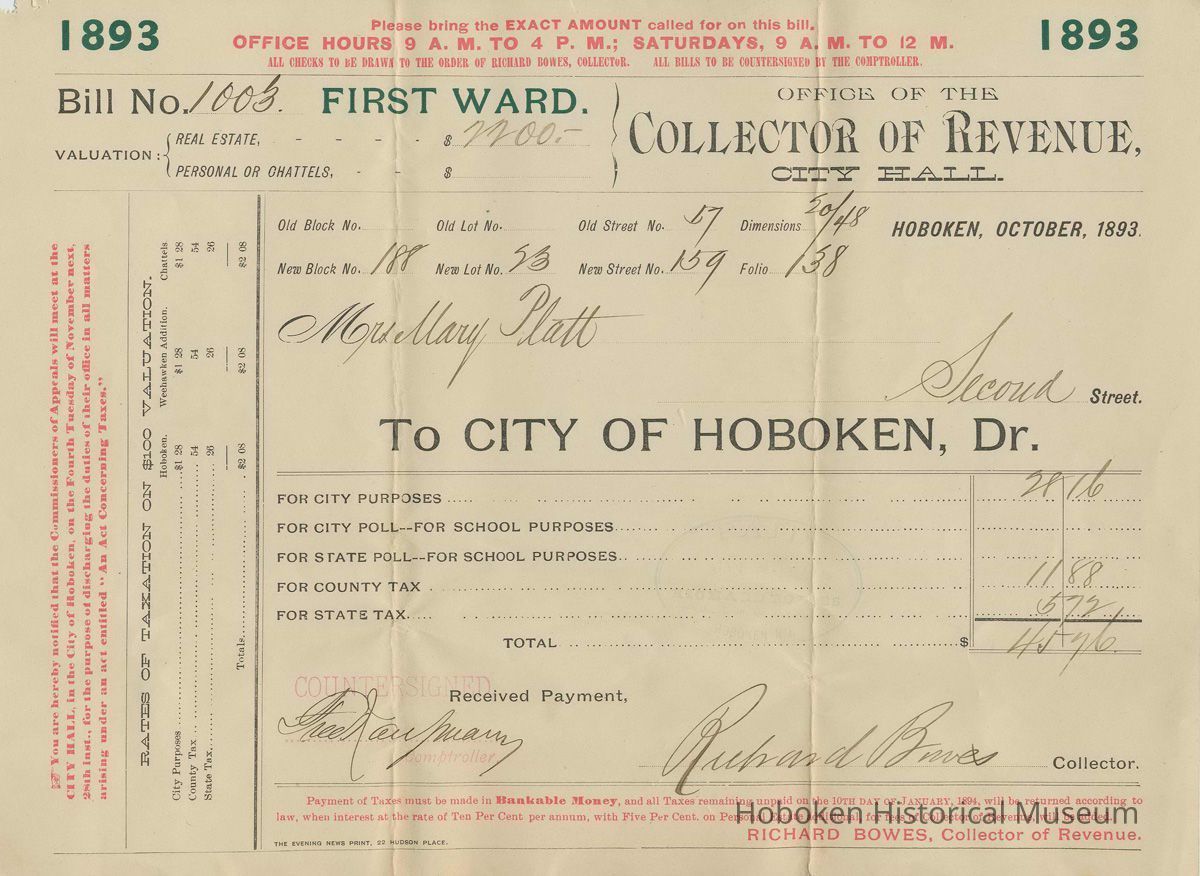 1893
Please bring the EXACT AMOUNT called for on this bill.
OFFICE HOURS 9 A. M. TO 4 P. M.; SATURDAYS, 9 A. M. TO 12 M.
ALL CHECKS TO BE DRAWN TO THE ORDER OF RICHARD BOWES, COLLECTOR. ALL BILLS TO BE COUNTERSIGNED BY THE COMPTROLLER.
1893
Bill No. 1003. FIRST WARD.
VALUATION:
REAL ESTATE, - - - - - $ 2200.-
PERSONAL OR CHATTELS, - - $
OFFICE OF THE
COLLECTOR OF REVENUE,
CITY HALL.
☞ You are hereby notified that the Commissioners of Appeals will meet at the
CITY HALL, in the City of Hoboken, on the Fourth Tuesday of November next,
28th inst., for the purpose of discharging the duties of their office in all matters
arising under an act entitled "An Act Concerning Taxes."
RATES OF TAXATION ON $100 VALUATION.
Hoboken. Weehawken Addition. Chattels
City Purposes $1 28 $1 28 $1 28
County Tax 54 54 54
State Tax, 26 26 26
Totals $2 08 $2 08 $2 08
Old Block No. Old Lot No. Old Street No. 57 Dimensions 20/48
HOBOKEN, OCTOBER, 1893.
New Block No. 188 New Lot No. 23 New Street No. 159 Folio 138
Mrs Mary Platt
Second Street.
To CITY OF HOBOKEN, Dr.
FOR CITY PURPOSES 28 16
FOR CITY POLL--FOR SCHOOL PURPOSES
FOR STATE POLL--FOR SCHOOL PURPOSES
FOR COUNTY TAX 11 88
FOR STATE TAX 5 72
TOTAL $ 45 76
COUNTERSIGNED
Received Payment,
Comptroller.
Richard Bowes Collector.
Payment of Taxes must be made in Bankable Money, and all Taxes remaining unpaid on the 10TH DAY OF JANUARY, 1894, will be returned according to
law, when interest at the rate of Ten Per Cent per annum, with Five Per Cent. on Personal Estate additional, for fees of Collector of Revenue, will be added.
RICHARD BOWES, Collector of Revenue.
THE EVENING NEWS PRINT, 22 HUDSON PLACE.
Hoboken Historical Museum